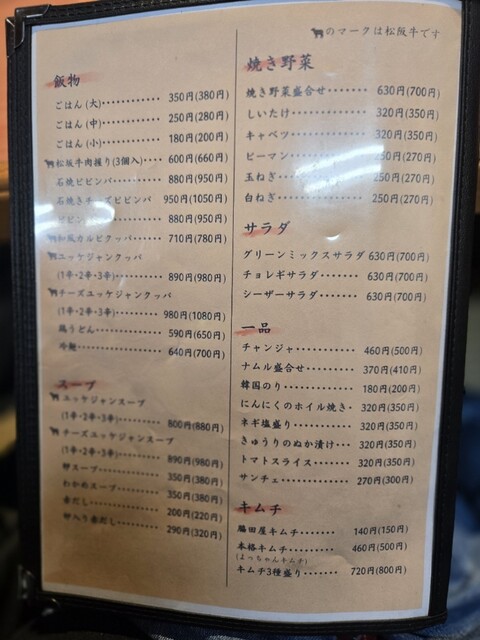 のマークは松阪牛です
飯物
ごはん (大)············ 350円(380円)
ごはん (中)············ 250円(280円)
ごはん (小)············ 180円(200円)
松阪牛肉握り(3個入)···· 600円(660円)
石焼ビビンバ······· 880円(950円)
石焼きチーズビビンバ 950円(1050円)
ビビンバ 880円(950円)
和風カルビクッパ······· 710円(780円)
ユッケジャンクッパ
(1辛·2辛·3辛)·········· 890円(980円)
チーズユッケジャンクッパ
(1辛·2辛·3辛)·········· 980円(1080円)
鶏うどん··········· 590円(650円)
冷麺··············· 640円(700円)
スープ
ユッケジャンスープ
(1辛·2辛·3辛)·········· 800円(880円)
チーズユッケジャンスープ
(1辛·2辛·3辛)·········· 890円(980円)
卵スープ··········· 350円(380円)
わかめスープ······· 350円(380円)
赤だし············· 200円(220円)
卵入り赤だし······· 290円(320円)
焼き野菜
焼き野菜盛合せ······· 630円(700円)
しいたけ············ 320円(350円)
キャベツ············ 320円(350円)
ピーマン 250円(270円)
玉ねぎ 250円(270円)
白ねぎ 250円(270円)
サラダ
グリーンミックスサラダ 630円(700円)
チョレギサラダ······· 630円(700円)
シーザーサラダ······· 630円(700円)
一品
チャンジャ·········· 460円(500円)
ナムル盛合せ········ 370円(410円)
韓国のり············ 180円(200円)
にんにくのホイル焼き· 320円(350円)
ネギ塩盛り·········· 320円(350円)
きゅうりのぬか漬け··· 320円(350円)
トマトスライス······· 320円(350円)
サンチェ············ 270円(300円)
キムチ
脇田屋キムチ······· 140円(150円)
本格キムチ········· 460円(500円)
(よっちゃんキムチ)
キムチ3種盛り······· 720円(800円)